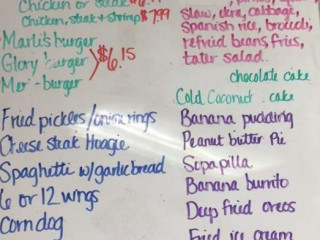 Chicken or steak
Chicken, steak + shrimp $7.99
Marlis burger
Glory burger
$6.15
Mer - burger
Fried pickles/onion rings
Cheese steak Hoagie
Spaghetti w/garlic bread
6 or 12 wngs
Corn dog
slaw, okra, cabbage,
Spanish rice, broccoli,
refried beans, fries,
tater salad.
chocolate cake
Cold Coconut cake
Banana pudding
Peanut butter Pie
Sopapilla
Banana burrito
Deep fried oreos
Fried ice cream